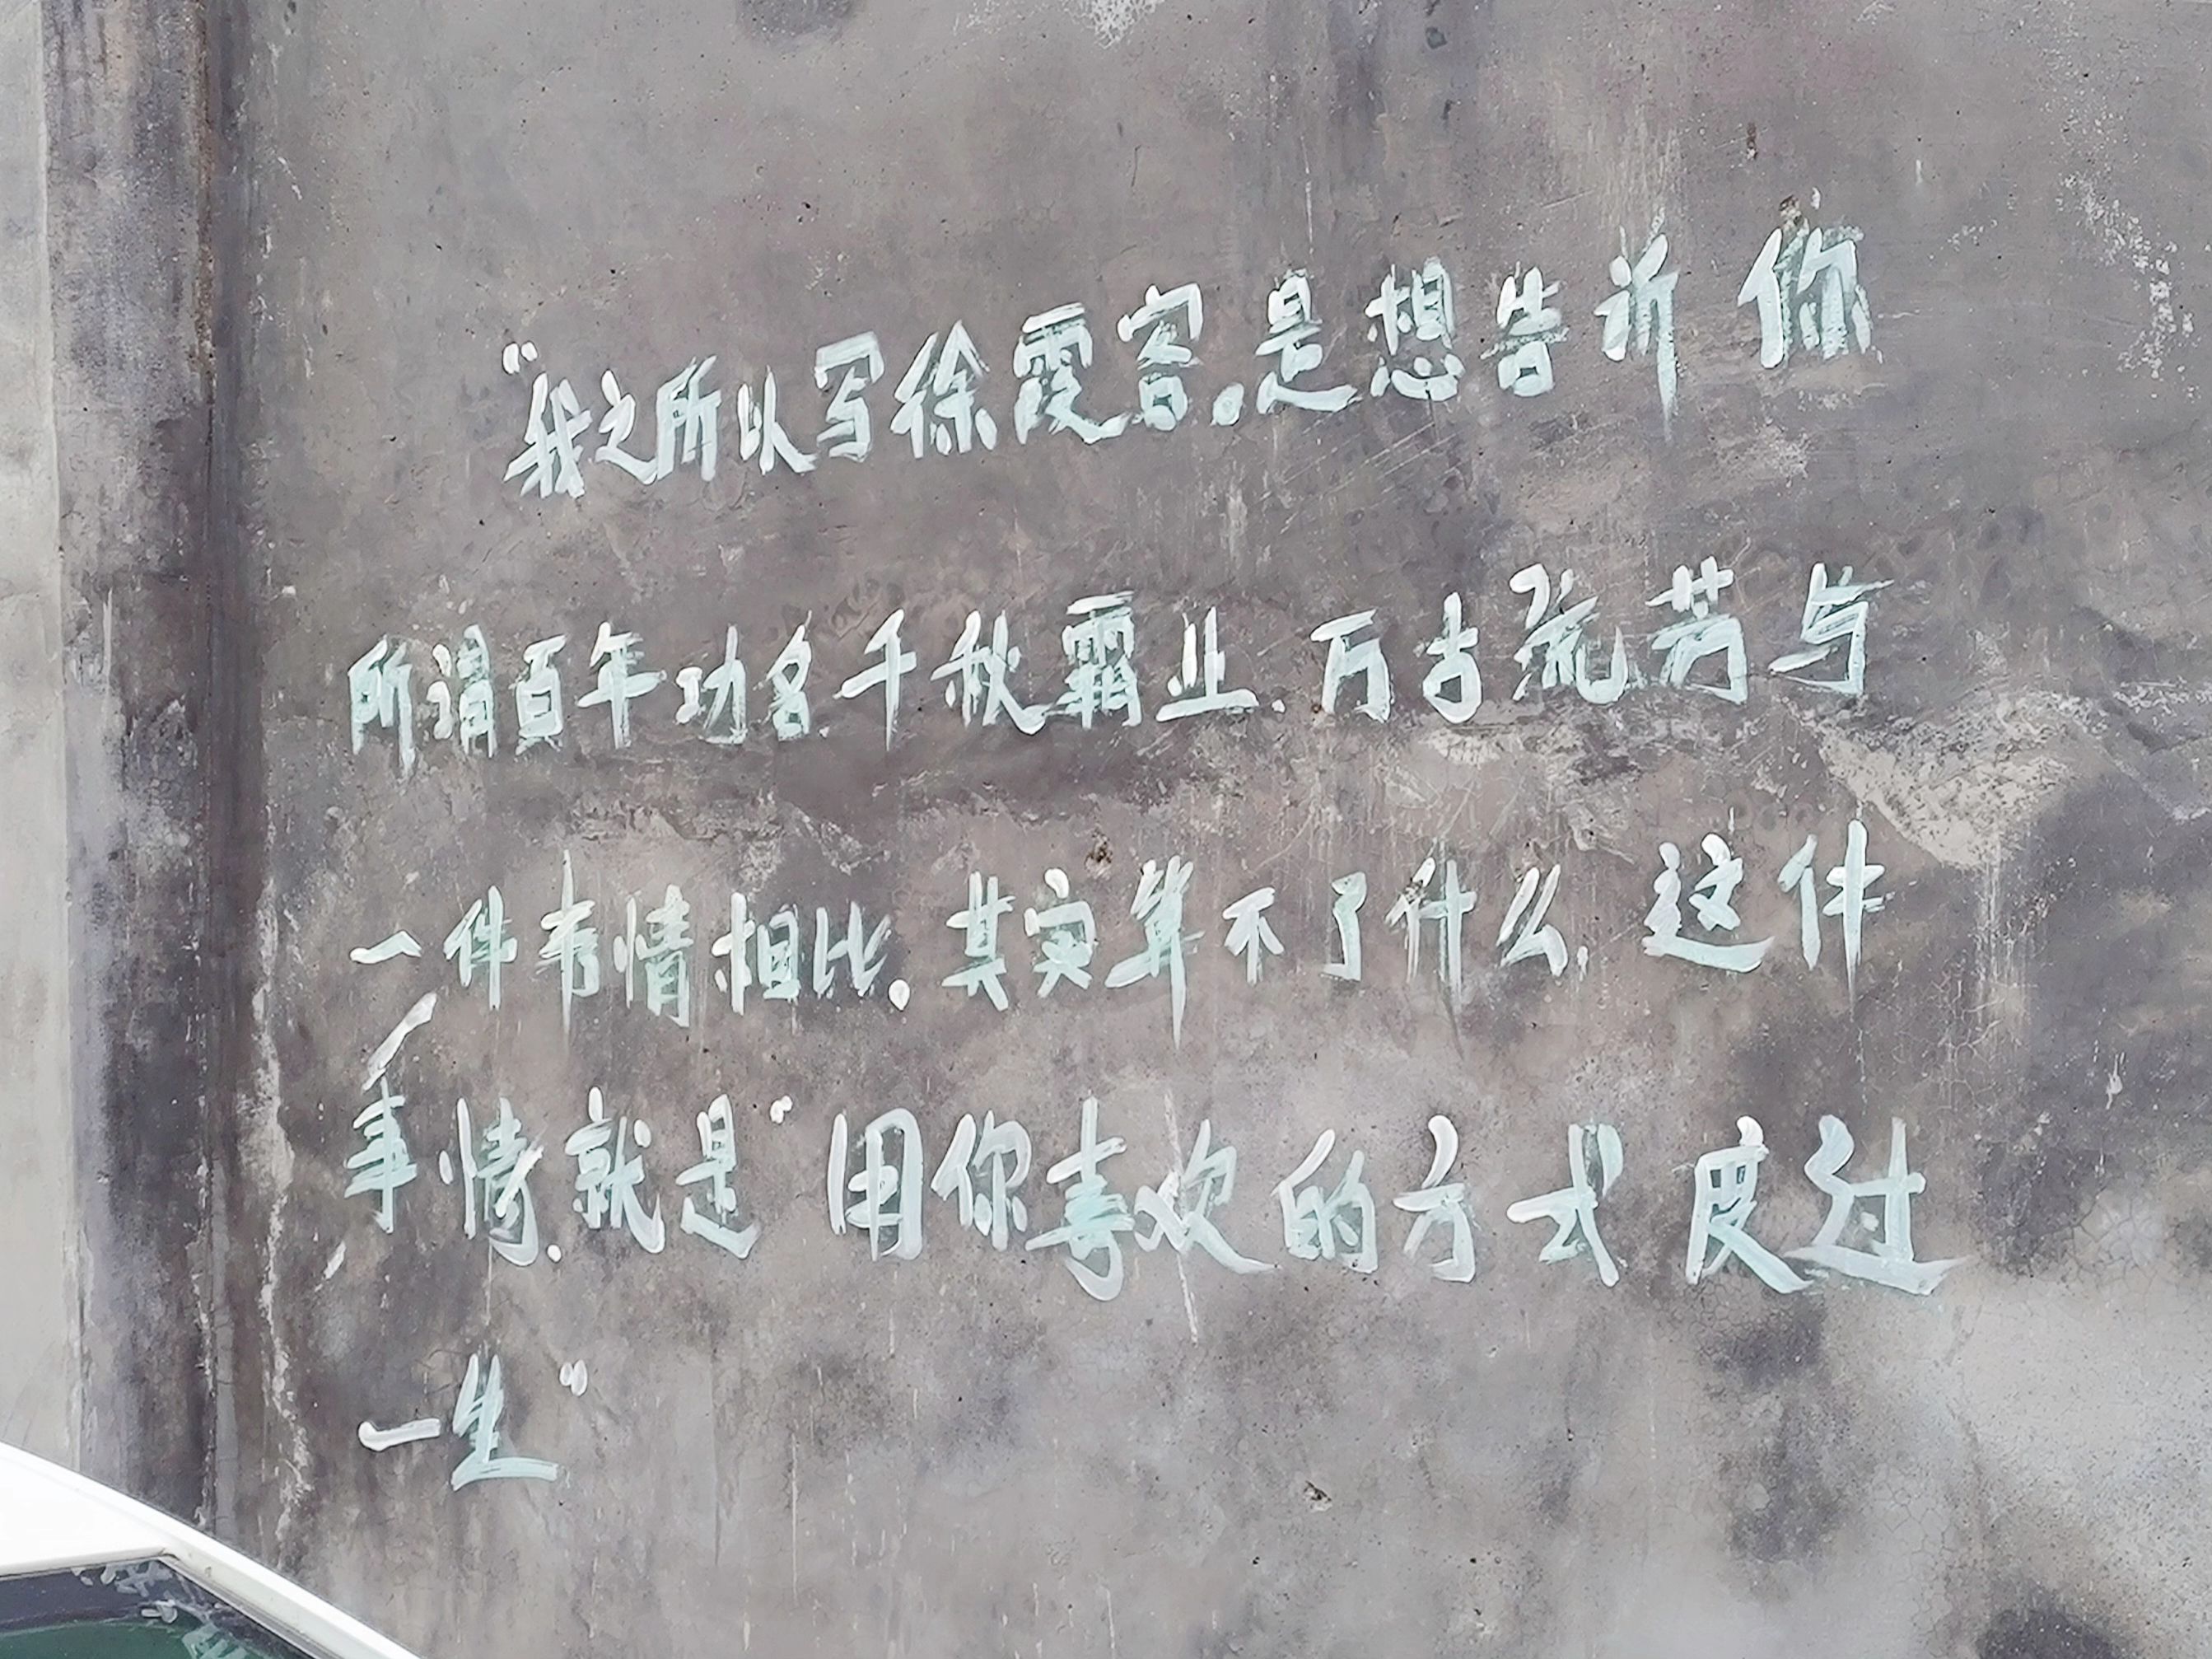 “我之所以写徐霞客。是想告诉你
所谓百年功名.千秋霸业.万古流芳与
一件事情相比.其实算不了什么.这件
事情.就是“用你喜欢的方式度过
一生”